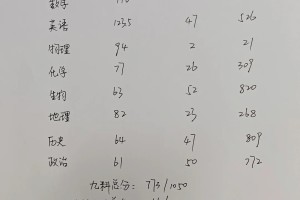 数学
英语 123.5 47 526
物理 94 2 21
化学 77 26 309
生物 63 52 820
地理 82 23 268
历史 64 47 809
政治 61 50 772
九科总分: 773/1050